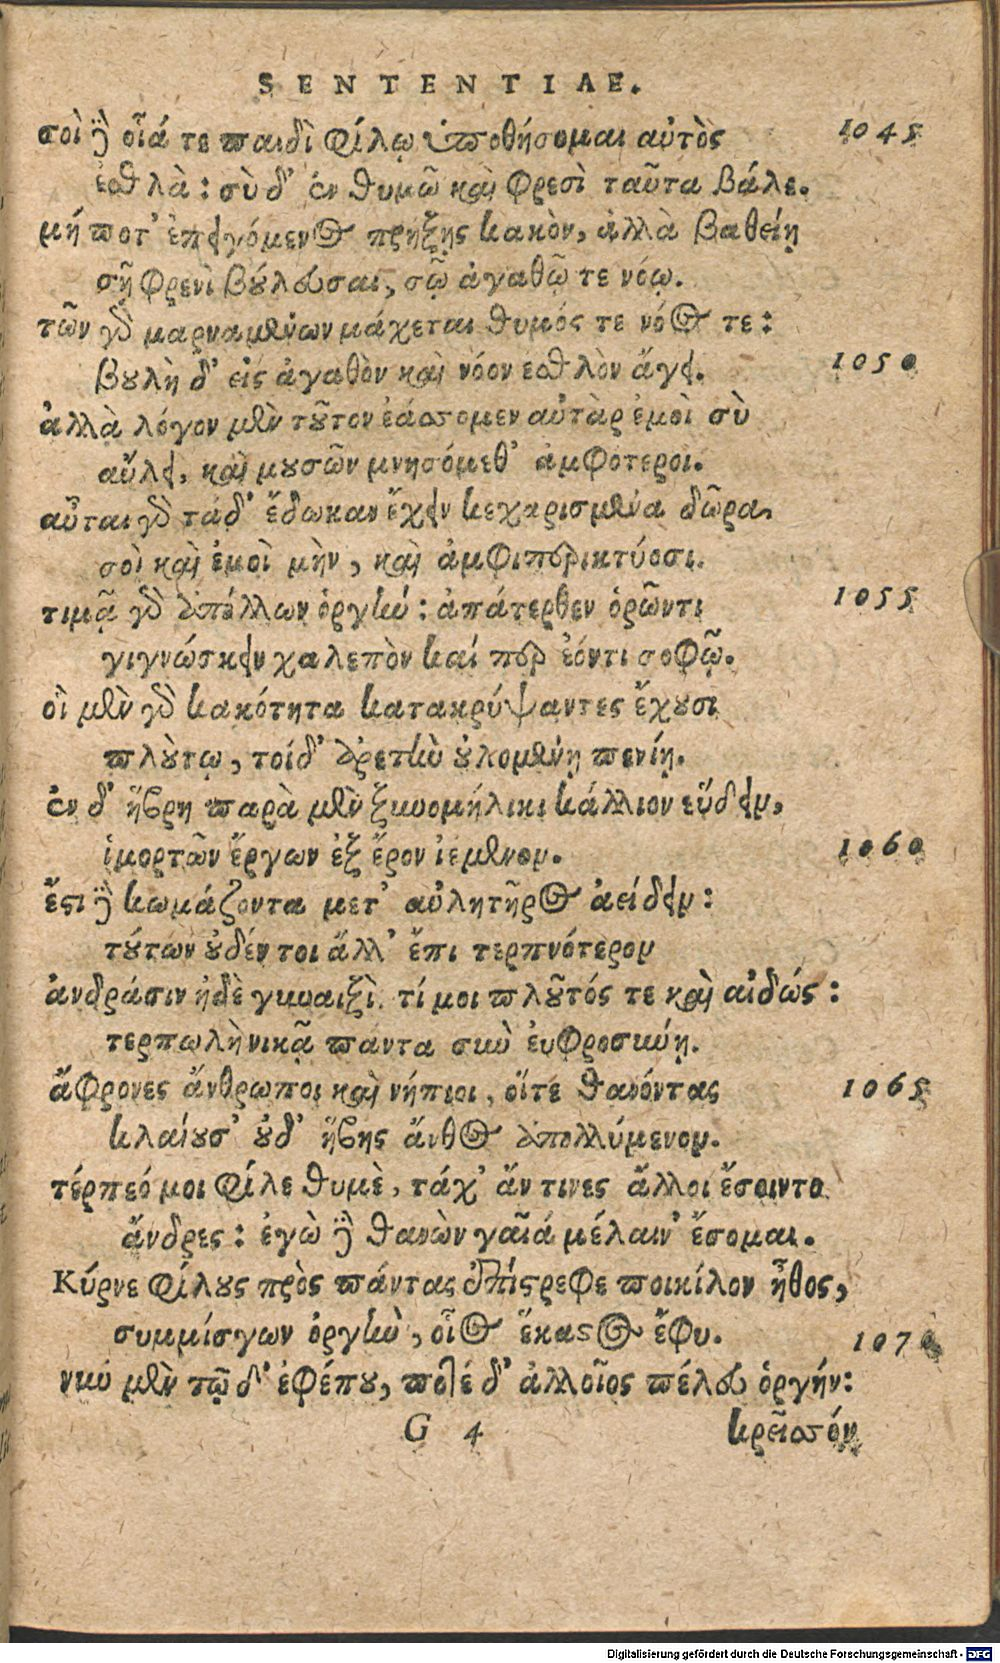 SENTENTIAE.
σοὶ δὲ οἷά τε παιδὶ φίλῳ ὑποθήσομαι αὐτὸς 1045
ἐσθλὰ: σὺ δ' ἐν θυμῷ καὶ φρεσὶ ταῦτα βάλε.
μή ποτ' ἐπειγόμενος πρήξῃς κακὸν, ἀλλὰ βαθείῃ
σῇ φρενὶ βούλευσαι, σῷ ἀγαθῷ τε νόῳ.
τῶν γὰρ μαρναμένων μάχεται θυμός τε νόος τε:
βουλὴ δ' εἰς ἀγαθὸν καὶ νόον ἐσθλὸν ἄγει. 1050
ἀλλὰ λόγον μὲν τοῦτον ἐάσομεν αὐτὰρ ἐμοὶ σὺ
αὔλει, καὶ μουσῶν μνησόμεθ' ἀμφοτεροι.
αὗται γὰρ τάδ' ἔδωκαν ἔχειν κεχαρισμένα δῶρα
σοὶ καὶ ἐμοὶ μὴν, καὶ ἀμφιπερικτύοσι.
τιμᾷ γὰρ ἀπόλλων ὀργήν: ἀπάτερθεν ὁρῶντι 1055
γιγνώσκειν χαλεπὸν καί περ ἐόντι σοφῷ.
οἱ μὲν γὰρ κακότητα κατακρύψαντες ἔχουσι
πλούτῳ, τοίδ' ἀρετὴν οὐλομένῃ πενίῃ.
ἐν δ' ἥβῃ παρὰ μὲν ξυνομήλικι κάλλιον εὕδειν,
ἱμορτῶν ἔργων ἐξ ἔρον ἱεμένον. 1060
ἔστι δὲ κωμάζοντα μετ' αὐλητῆρος ἀείδειν:
τούτων οὐδέν τοι ἄλλ' ἔπι τερπνότερον
ἀνδράσιν ἠδὲ γυναιξὶ. τί μοι πλοῦτός τε καὶ αἰδώς:
τερπωλὴ νικᾷ πάντα σὺν εὐφροσύνῃ.
ἄφρονες ἄνθρωποι καὶ νήπιοι, οἵτε θανόντας 1065
κλαίουσ' οὐδ' ἥβης ἄνθος ἀπολλύμενον.
τέρπεό μοι φίλε θυμὲ, τάχ' ἄν τινες ἄλλοι ἔσοιντο
ἄνδρες: ἐγὼ δὲ θανὼν γαῖα μέλαιν' ἔσομαι.
Κύρνε φίλους πρὸς πάντας ἐπίστρεφε ποικίλον ἦθος,
συμμίσγων ὀργὴν, οἷος ἕκαστος ἔφυ. 1070
νῦν μὲν τῷ δ' ἐφέπου, ποτέ δ' ἀλλοῖος πέλευ ὀργήν:
G 4 κρεῖσσόν
Digitalisierung gefördert durch die Deutsche Forschungsgemeinschaft - DFG